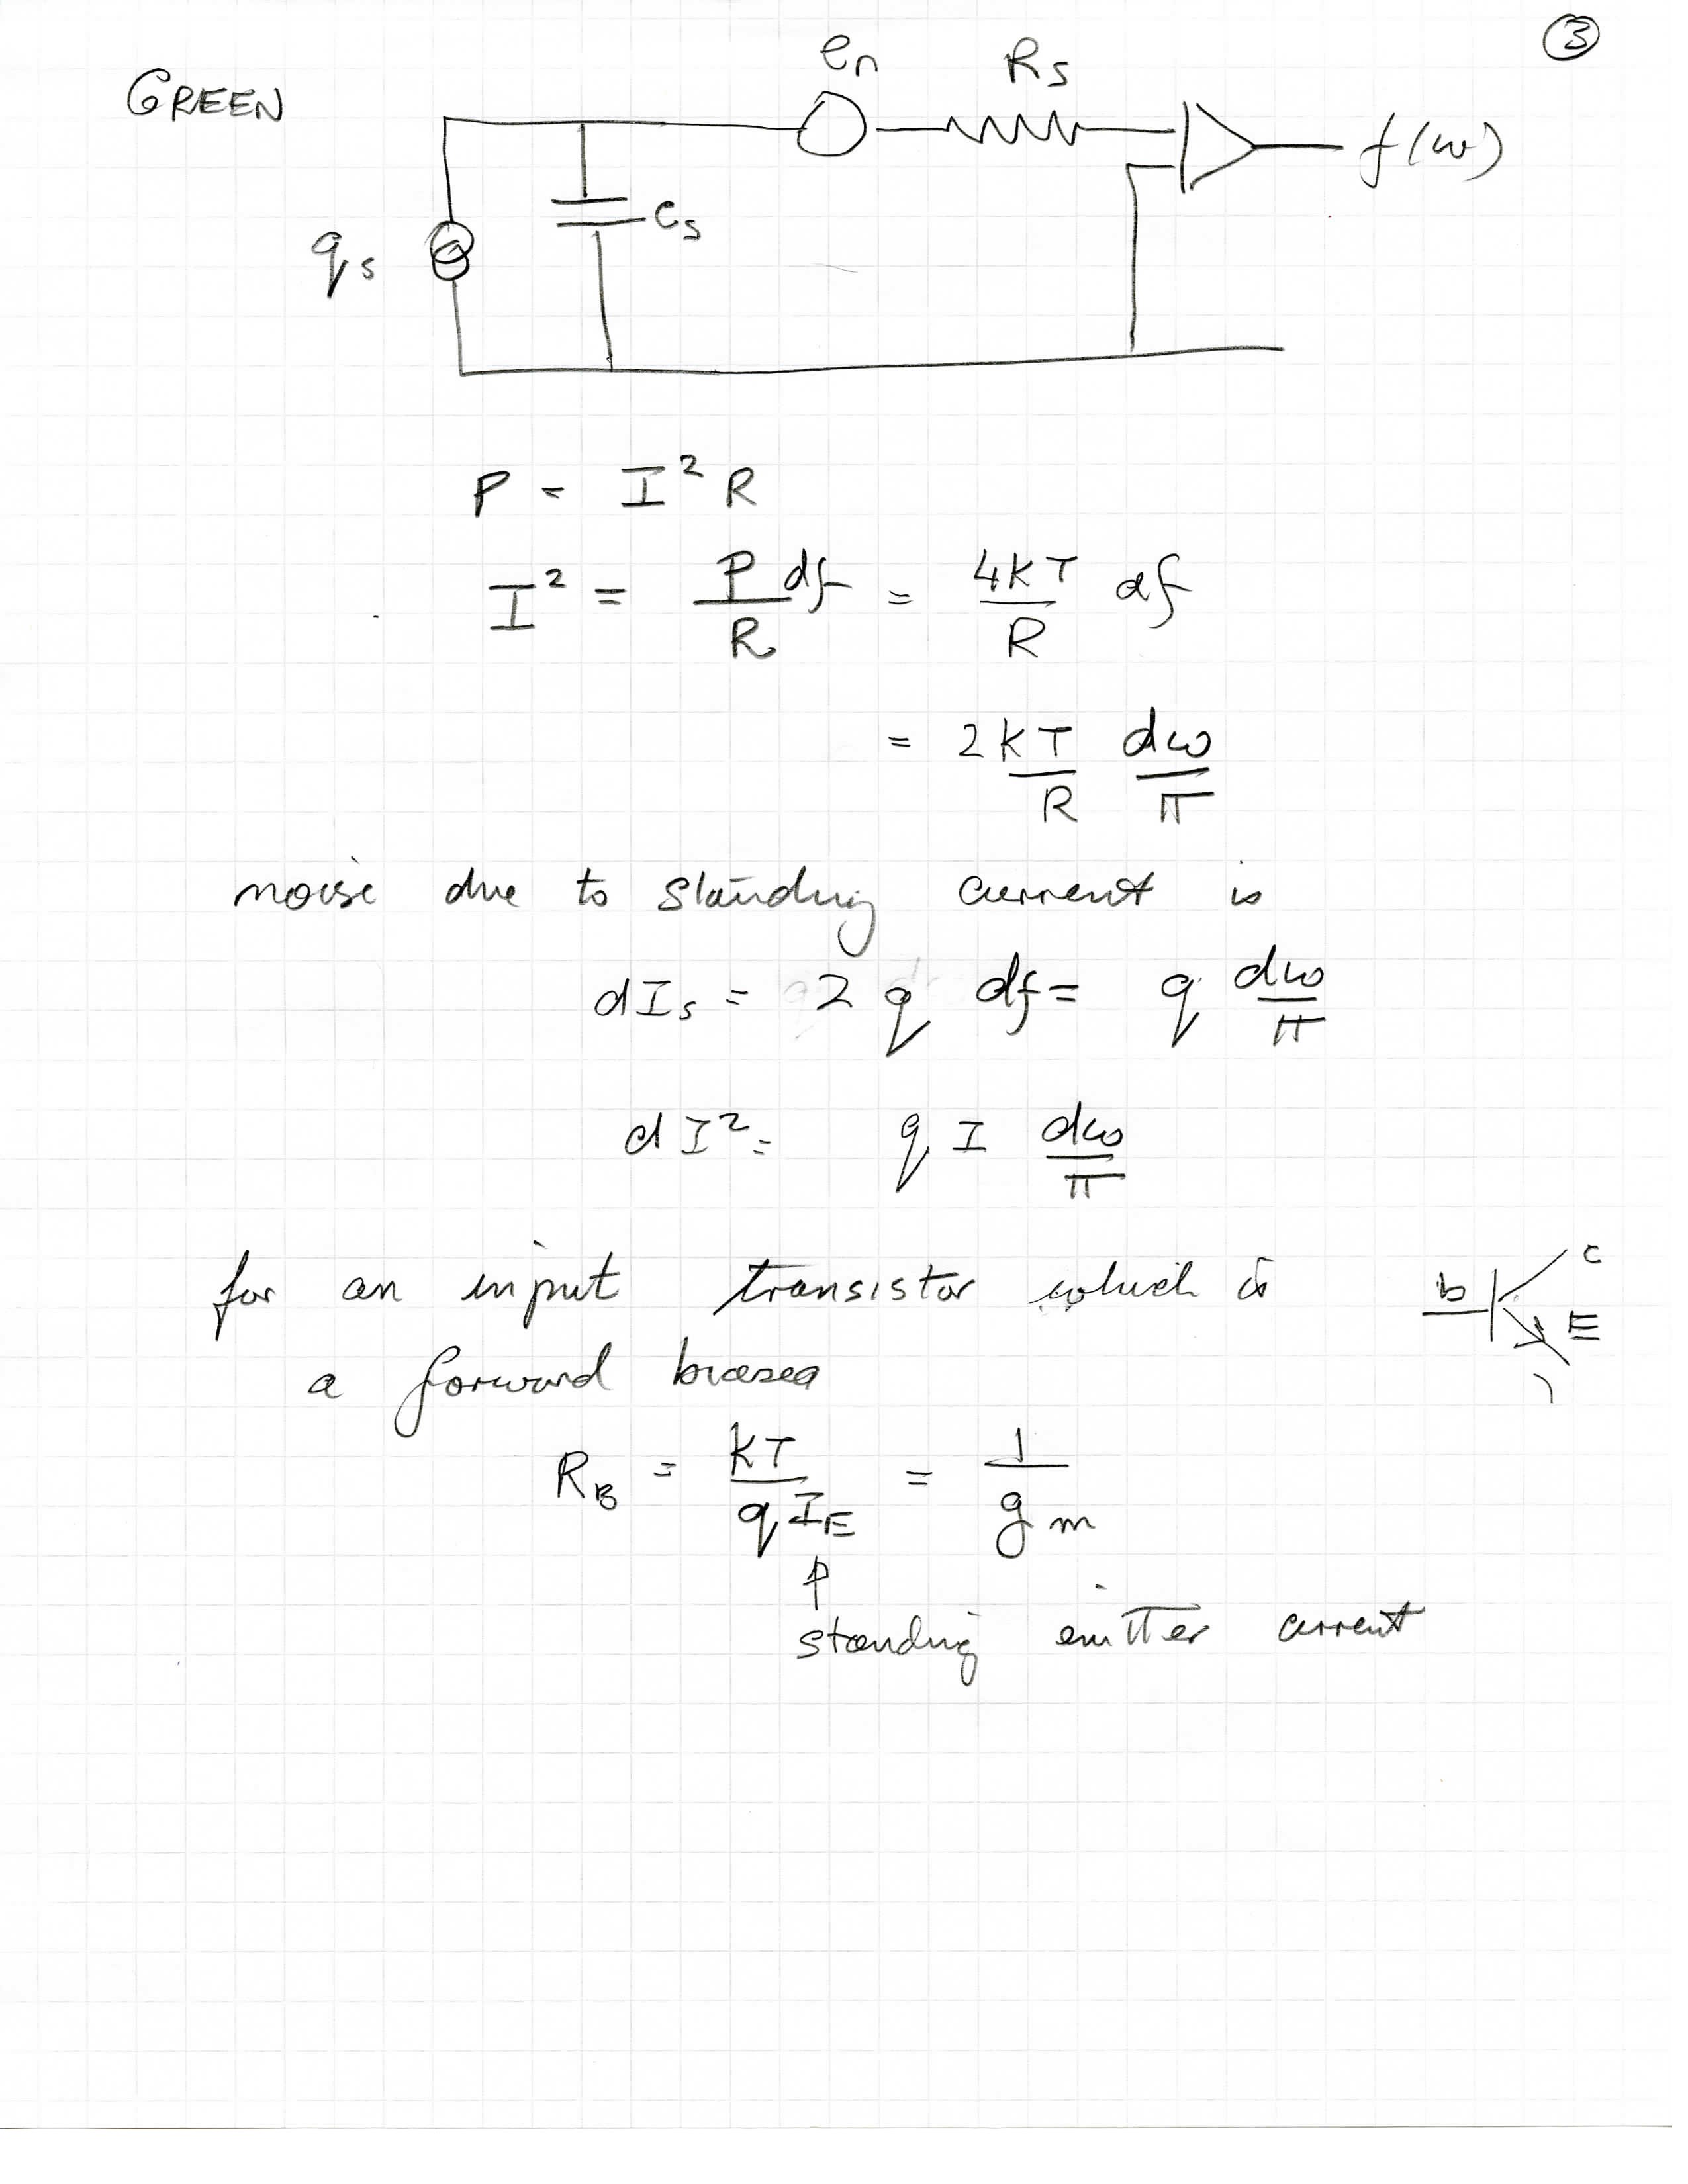 ③
GREEN
en Rs
f(ω)
Cs
qs
P = I² R
I² = P df / R = 4KT / R df
= 2KT / R dω / π
noise due to standing current is
dIs = 2 q df = q dω / π
dI² = q I dω / π
for an input transistor which is
b C E
a forward biased
RB = KT / q IE = 1 / gm
standing emitter current